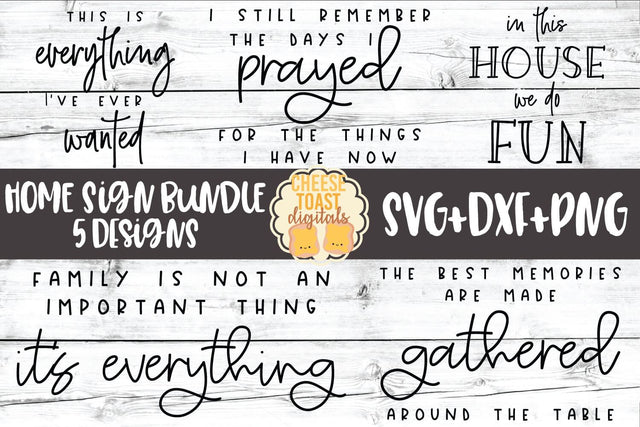 THIS IS
everything
I'VE EVER
wanted
I STILL REMEMBER
THE DAYS I
prayed
FOR THE THINGS
I HAVE NOW
in this
HOUSE
we do
FUN
HOME SIGN BUNDLE
5 DESIGNS
CHEESE
TOAST
digitals
SVG+DXF+PNG
FAMILY IS NOT AN
IMPORTANT THING
it's everything
THE BEST MEMORIES
ARE MADE
gathered
AROUND THE TABLE